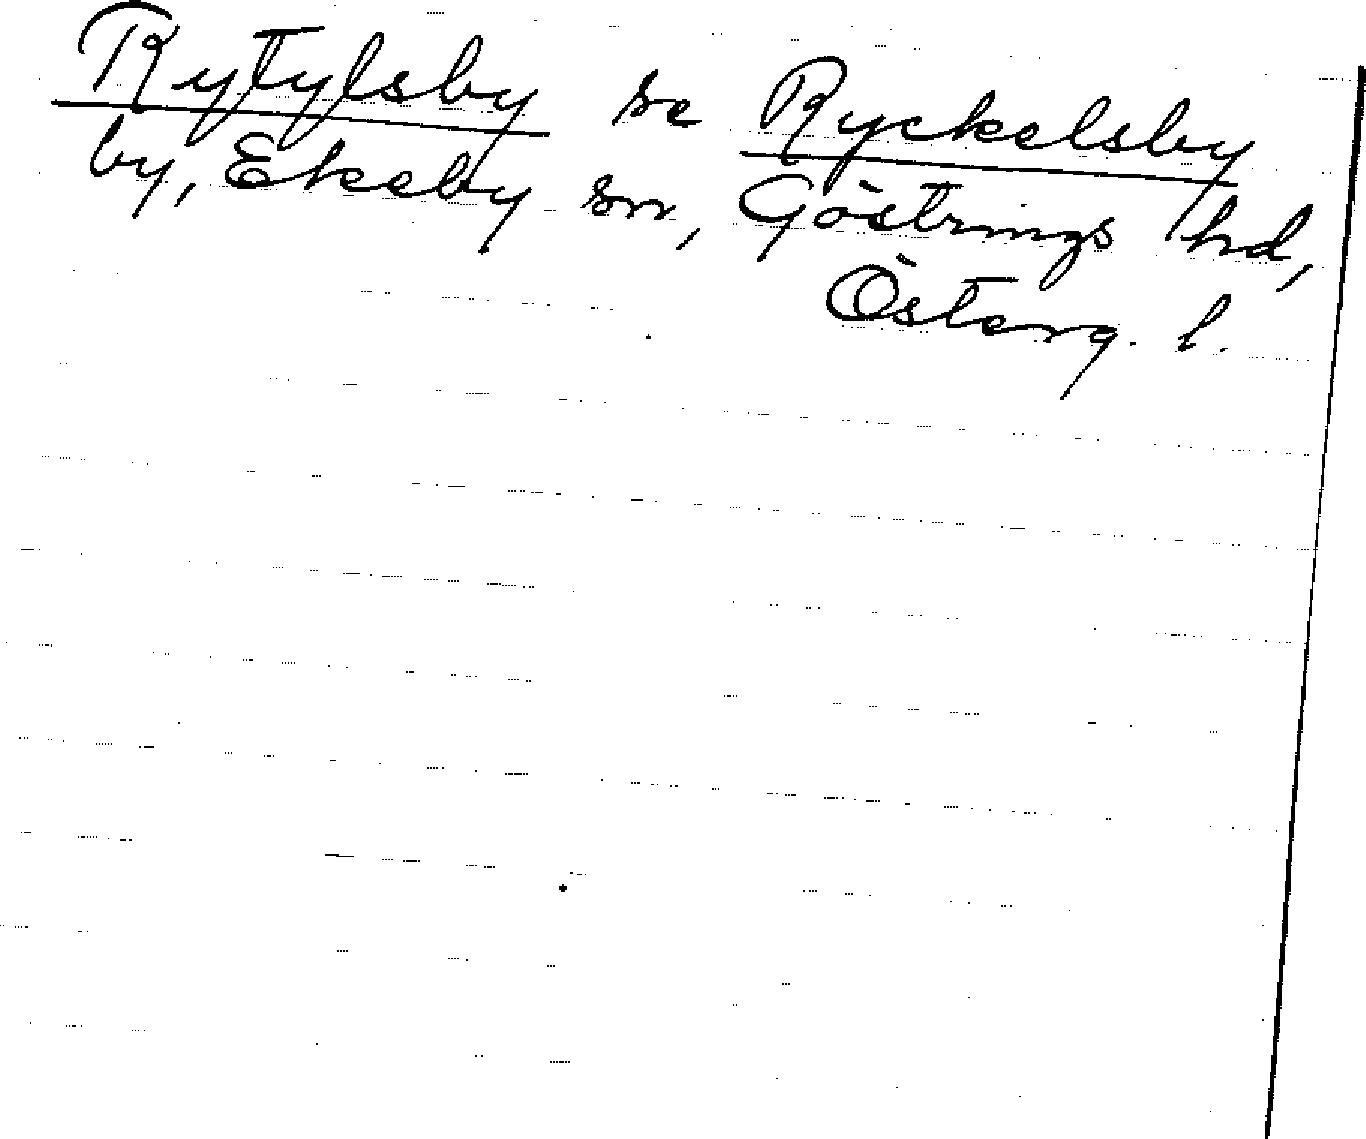 Rytylsby se Ryckelsby
by, Ekeby sn, Göstrings hd,
Österg. l.